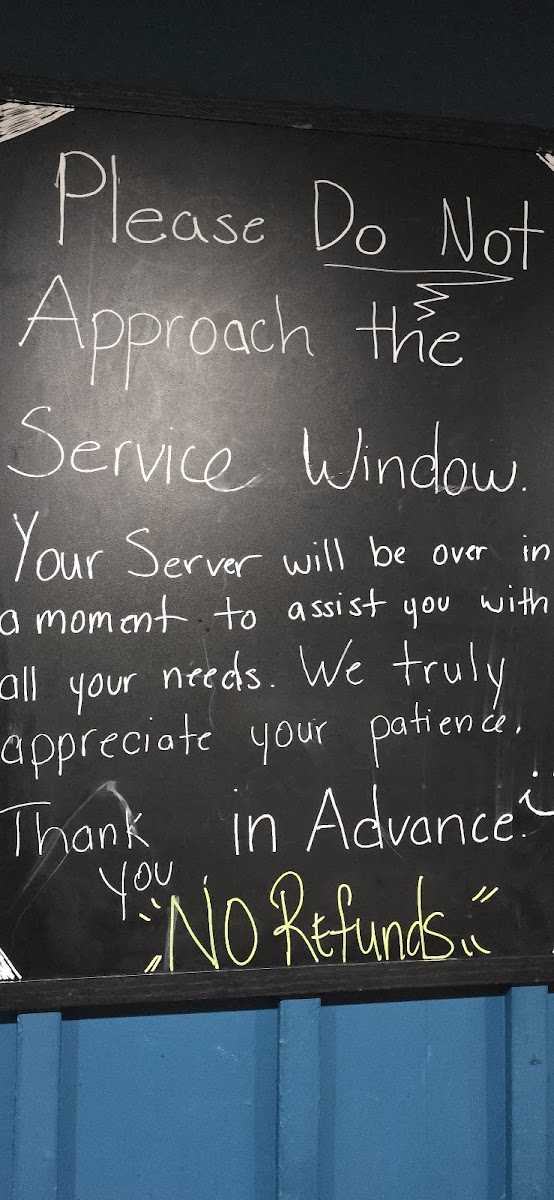 Please Do Not
Approach the
Service Window.
Your Server will be over in
a moment to assist you with
all your needs. We truly
appreciate your patience.
Thank you in Advance. :)
"NO Refunds"